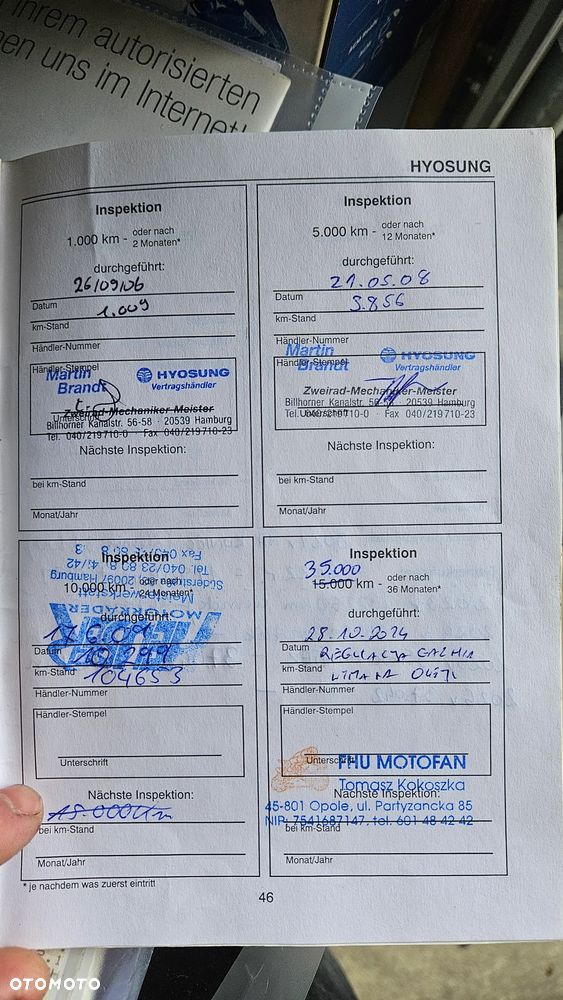 ihrem autorisierten
en uns im Internet!
HYOSUNG
Inspektion
1.000 km - oder nach
2 Monaten*
durchgeführt:
26/09/06
Datum
1.009
km-Stand
Händler-Nummer
Händler-Stempel
Martin
Brandt
HYOSUNG
Vertragshändler
Zweirad-Mechaniker-Meister
Unterschrift
Billhorner Kanalstr. 56-58 · 20539 Hamburg
Tel. 040/219 710-0 · Fax 040/219 710-23
Nächste Inspektion:
bei km-Stand
Monat/Jahr
Inspektion
5.000 km - oder nach
12 Monaten*
durchgeführt:
21.05.08
Datum
3.856
km-Stand
Händler-Nummer
Händler-Stempel
Martin
Brandt
HYOSUNG
Vertragshändler
Zweirad-Mechaniker-Meister
Billhorner Kanalstr. 56-58 · 20539 Hamburg
Tel. 040/219 710-0 · Fax 040/219 710-23
Unterschrift
Nächste Inspektion:
bei km-Stand
Monat/Jahr
Inspektion
10.000 km - oder nach
24 Monaten*
durchgeführt:
17.6.09
Datum
10.299
km-Stand
104653
Händler-Nummer
MOTORRÄDER
Meisterwerkstatt
Hamburg
Händler-Stempel
Unterschrift
Nächste Inspektion:
15.000km
bei km-Stand
Monat/Jahr
* je nachdem was zuerst eintritt
Inspektion
35.000
15.000 km - oder nach
36 Monaten*
durchgeführt:
28.10.2024
Datum
REGULACJA
km-Stand
Händler-Nummer
Händler-Stempel
Unterschrift
FHU MOTOFAN
Tomasz Kokoszka
Nächste Inspektion:
45-801 Opole, ul. Partyzancka 85
NIP: 7541687147, tel. 601 48 42 42
bei km-Stand
Monat/Jahr
46
OTOMOTO